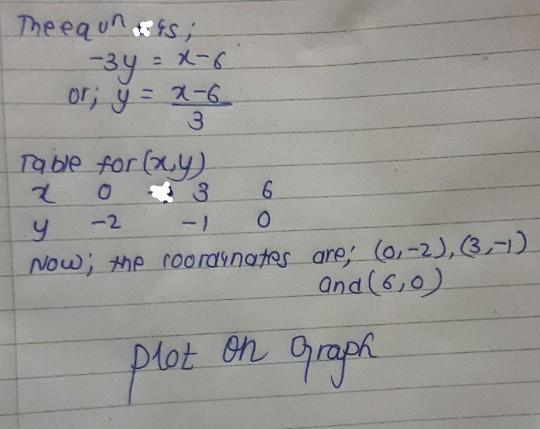 The equn is;
-3y = x-6
or; y = x-6
3
Table for (x,y)
x 0 3 6
y -2 -1 0
Now; the coordinates are; (0,-2), (3,-1)
and (6,0)
plot on graph